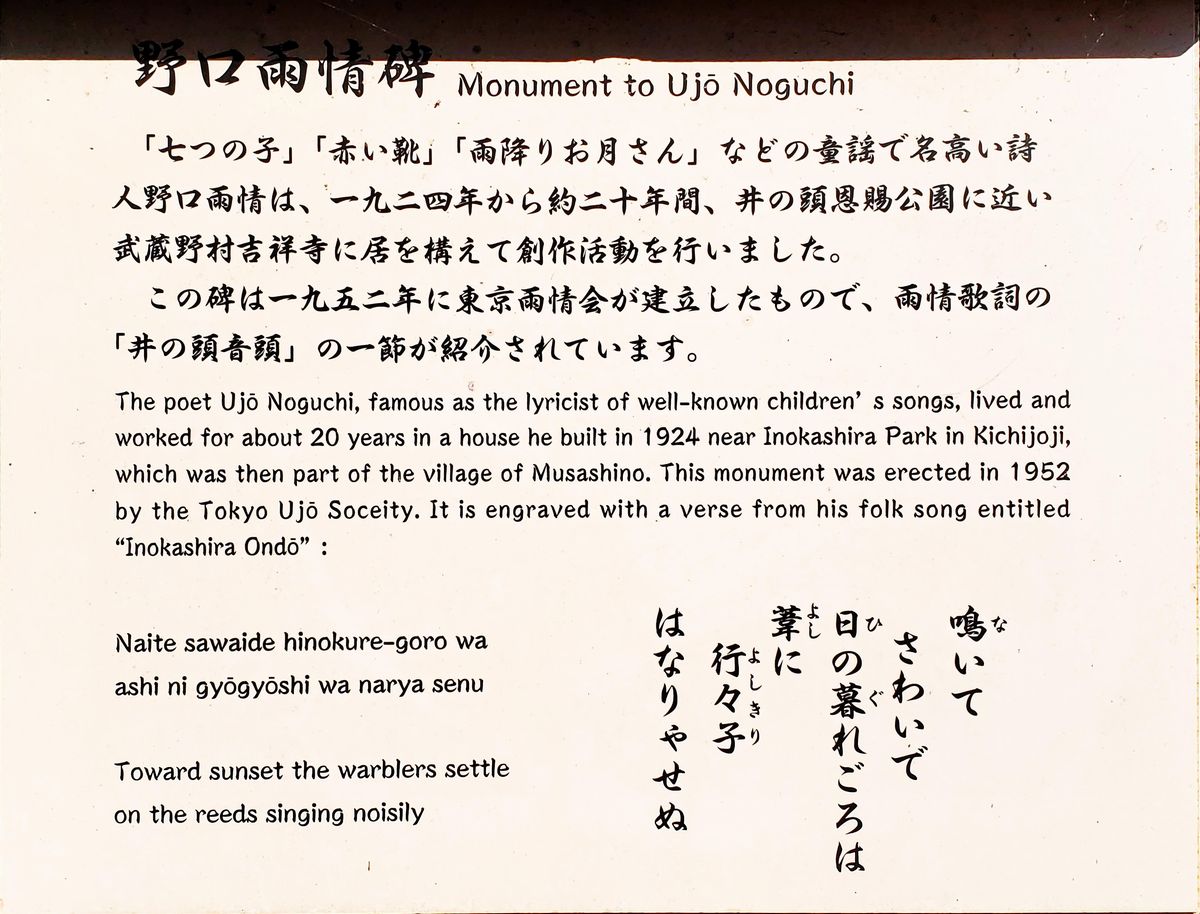 野口雨情碑 Monument to Ujō Noguchi
「七つの子」「赤い靴」「雨降りお月さん」などの童謡で名高い詩
人野口雨情は、一九二四年から約二十年間、井の頭恩賜公園に近い
武蔵野村吉祥寺に居を構えて創作活動を行いました。
この碑は一九五二年に東京雨情会が建立したもので、雨情歌詞の
「井の頭音頭」の一節が紹介されています。
The poet Ujō Noguchi, famous as the lyricist of well-known children’ s songs, lived and
worked for about 20 years in a house he built in 1924 near Inokashira Park in Kichijoji,
which was then part of the village of Musashino. This monument was erected in 1952
by the Tokyo Ujō Soceity. It is engraved with a verse from his folk song entitled
“Inokashira Ondō” :
鳴いて
な
さわいで
日の暮れごろは
ひ ぐ
葦に
よし
行々子
よしきり
はなりゃせぬ
Naite sawaide hinokure-goro wa
ashi ni gyōgyōshi wa narya senu
Toward sunset the warblers settle
on the reeds singing noisily